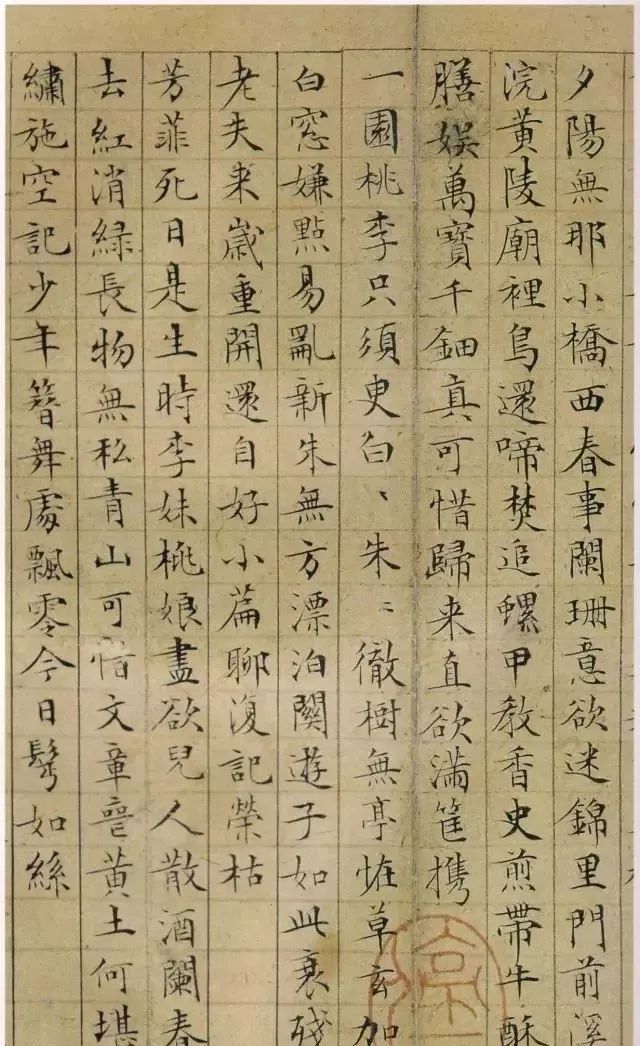 夕陽無那小橋西春事闌珊意欲迷錦里門前溪
浣黃陵廟裡鳥還啼焚追螺甲教香史煎帶牛酥
膳娛萬寶千鈿真可惜歸来直欲滿筐携
一園桃李只須臾白白朱朱徹樹無亭恠草玄加
白窓嫌點易亂新朱無方漂泊關遊子如此衰殘
老夫来歲重開還自好小篇聊復記榮枯
芳菲死日是生時李妹桃娘盡欲兒人散酒闌春
去紅消綠長物無私青山可惜文章喪黃土何堪
繡施空記少年簪舞處飄零今日鬂如絲